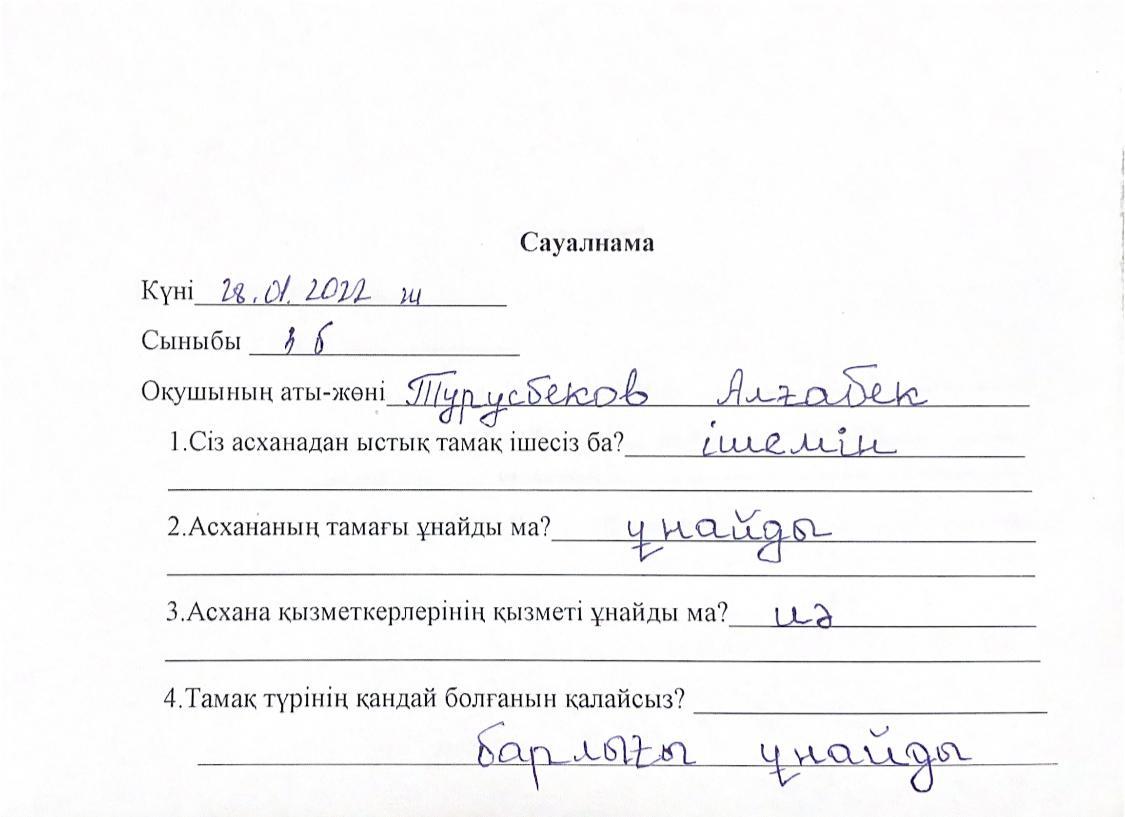 Сауалнама
Күні 28.01.2022 ж
Сыныбы 3 б
Оқушының аты-жөні Турусбеков Алғабек
1.Сіз асханадан ыстық тамақ ішесіз ба? ішемін
2.Асхананың тамағы ұнайды ма? ұнайды
3.Асхана қызметкерлерінің қызметі ұнайды ма? иә
4.Тамақ түрінің қандай болғанын қалайсыз?
барлығы ұнайды